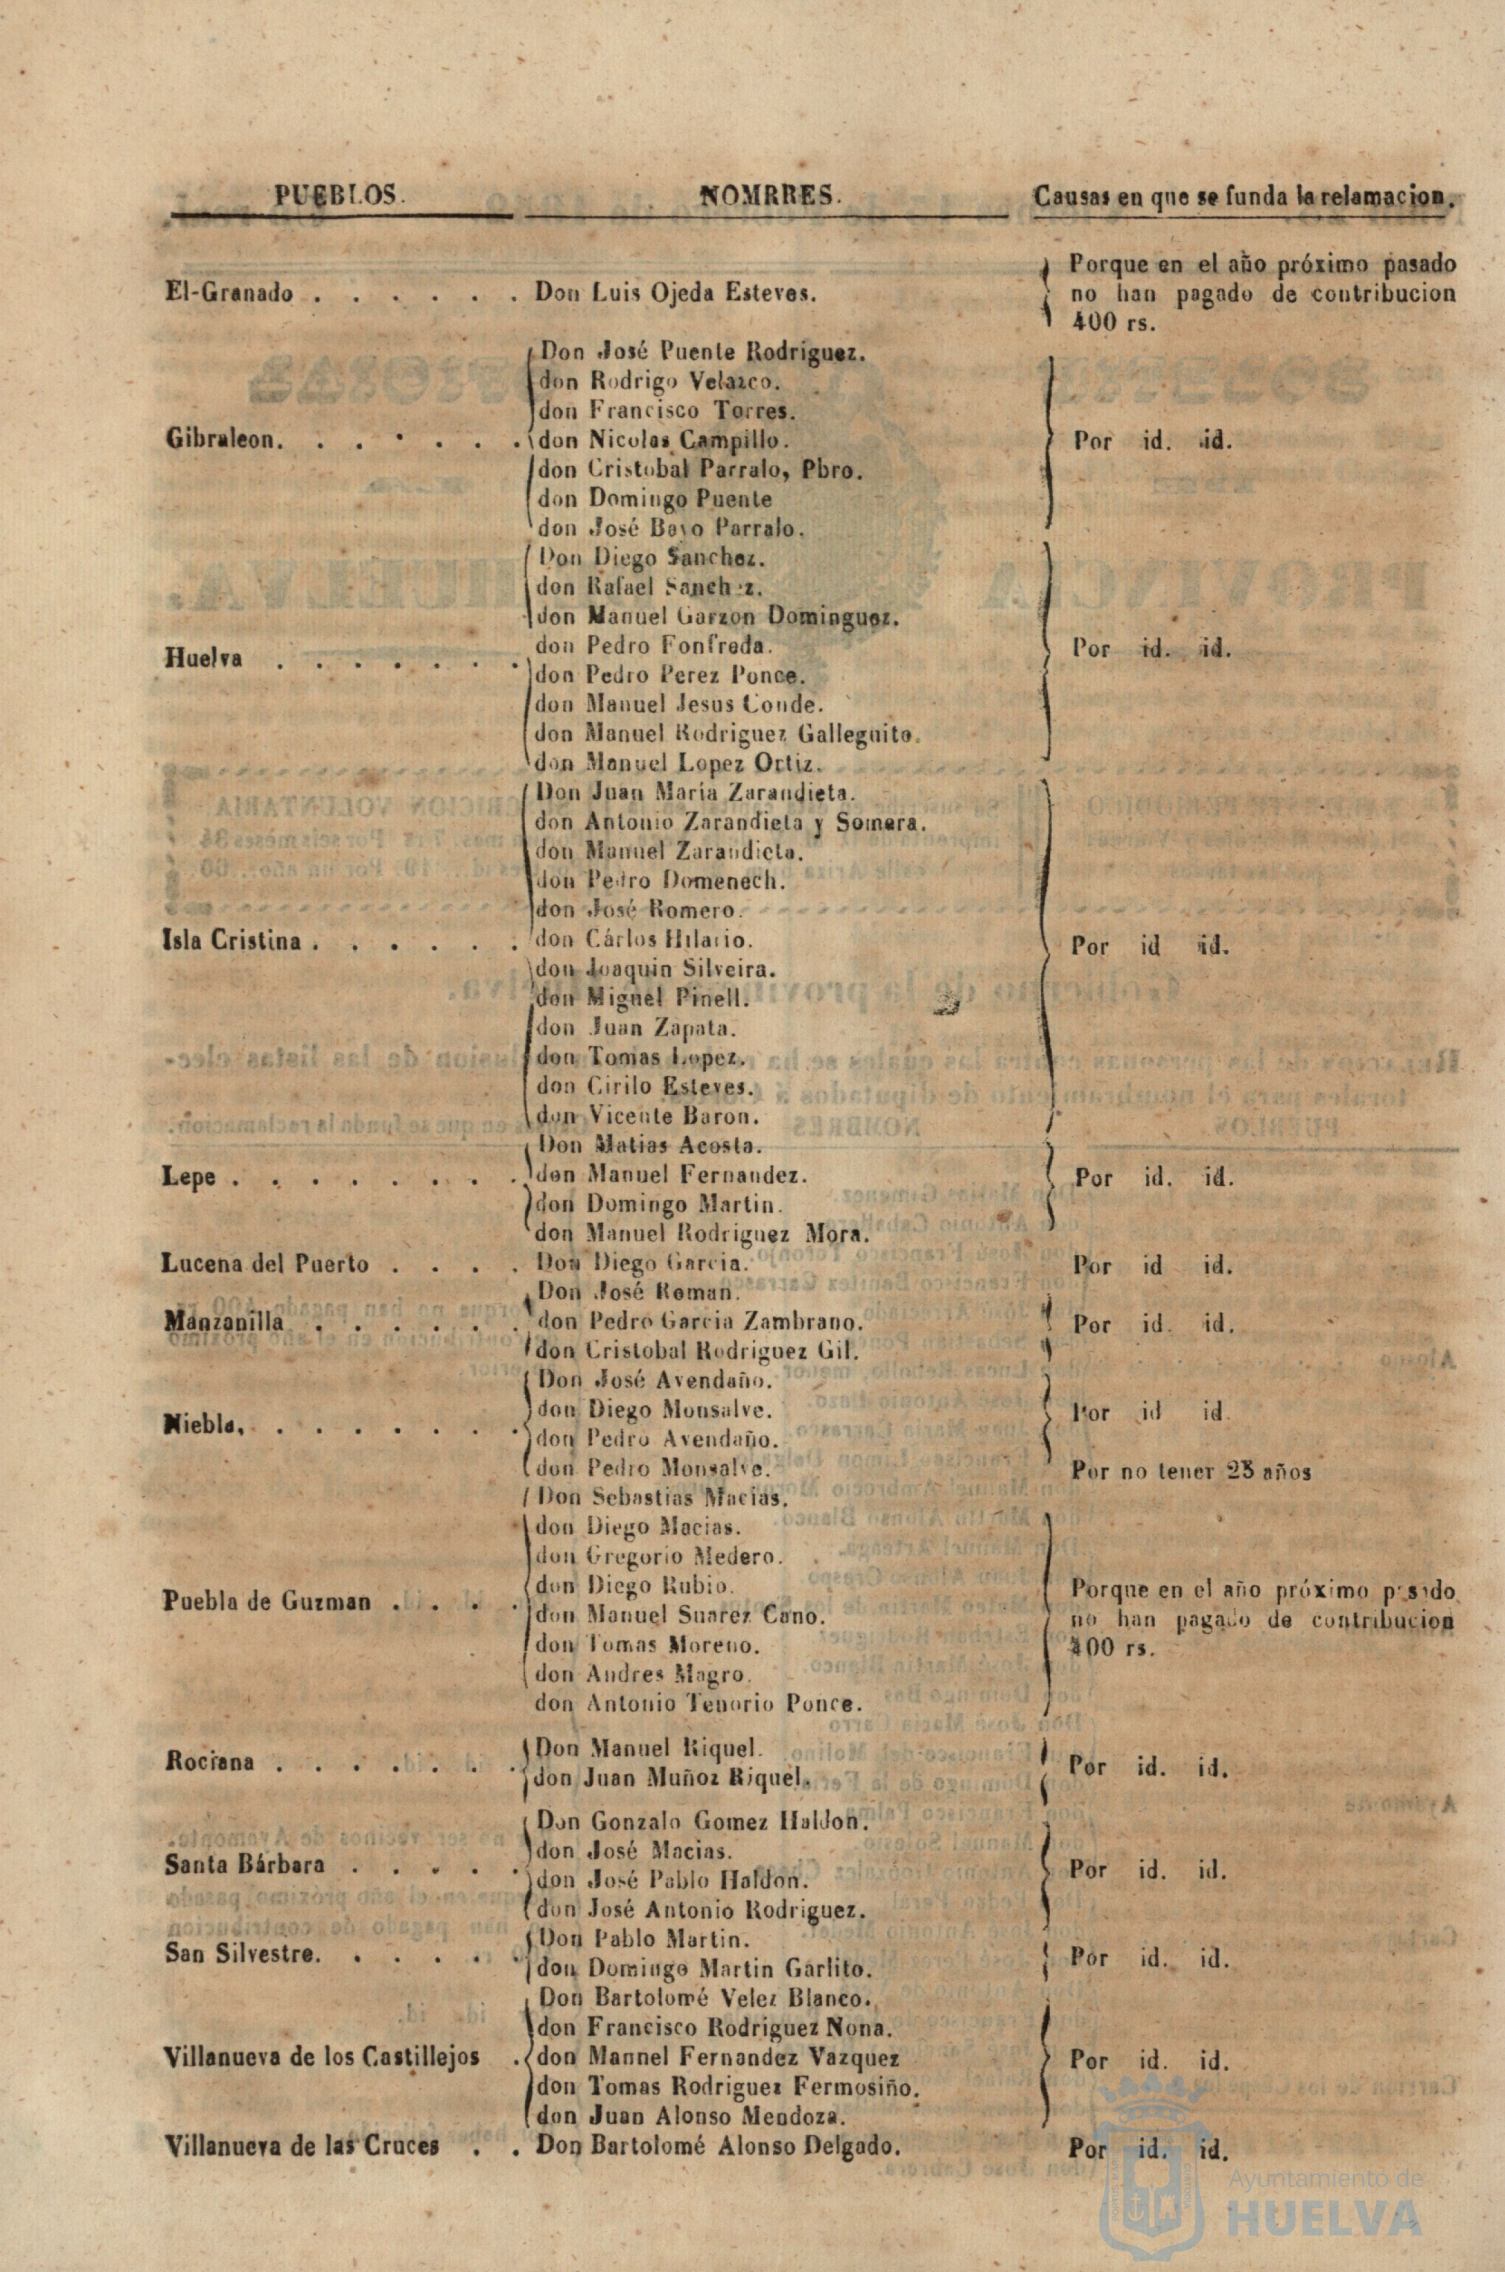 PUEBLOS.
NOMRRES.
Causas en que se funda la relamacion.
El-Granado . . . . . . Don Luis Ojeda Esteves.
Porque en el año próximo pasado
no han pagado de contribucion
400 rs.
Gibraleon. . . . . . .
Don José Puente Rodriguez.
don Rodrigo Velazco.
don Francisco Torres.
don Nicolas Campillo.
don Cristobal Parralo, Pbro.
don Domingo Puente
don José Bayo Parralo.
Por id. id.
Huelva . . . . . . .
Don Diego Sanchez.
don Rafael Sanchez.
don Manuel Garzon Dominguez.
don Pedro Fonfreda.
don Pedro Perez Ponce.
don Manuel Jesus Conde.
don Manuel Rodriguez Galleguito.
don Manuel Lopez Ortiz.
Por id. id.
Isla Cristina . . . . . .
Don Juan María Zarandieta.
don Antonio Zarandieta y Somera.
don Manuel Zarandieta.
don Pedro Domenech.
don José Romero.
don Cárlos Hilario.
don Joaquin Silveira.
don Miguel Pinell.
don Juan Zapata.
don Tomas Lopez.
don Cirilo Esteves.
don Vicente Baron.
Por id id.
Lepe . . . . . . . .
Don Matias Acosta.
don Manuel Fernandez.
don Domingo Martin.
don Manuel Rodriguez Mora.
Por id. id.
Lucena del Puerto . . . . Don Diego Garcia.
Por id id.
Manzanilla . . . . . .
Don José Roman.
don Pedro Garcia Zambrano.
don Cristobal Rodriguez Gil.
Por id. id.
Niebla. . . . . . . .
Don José Avendaño.
don Diego Monsalve.
don Pedro Avendaño.
don Pedro Monsalve.
Por id id.
Por no tener 25 años
Puebla de Guzman . . . .
Don Sebastias Macias.
don Diego Macias.
don Gregorio Medero.
don Diego Rubio.
don Manuel Suarez Cano.
don Tomas Moreno.
don Andres Magro.
don Antonio Tenorio Ponce.
Porque en el año próximo pasado
no han pagado de contribucion
400 rs.
Rociana . . . . . . .
Don Manuel Riquel.
don Juan Muñoz Riquel.
Por id. id.
Santa Bárbara . . . . .
Don Gonzalo Gomez Haldon.
don José Macias.
don José Pablo Haldon.
don José Antonio Rodriguez.
Por id. id.
San Silvestre. . . . . .
Don Pablo Martin.
don Domingo Martin Garlito.
Por id. id.
Villanueva de los Castillejos .
Don Bartolomé Velez Blanco.
don Francisco Rodriguez Nona.
don Mannel Fernandez Vazquez
don Tomas Rodriguez Fermosiño.
don Juan Alonso Mendoza.
Por id. id.
Villanueva de las Cruces . . Don Bartolomé Alonso Delgado.
Por id. id.
Ayuntamiento de
HUELVA